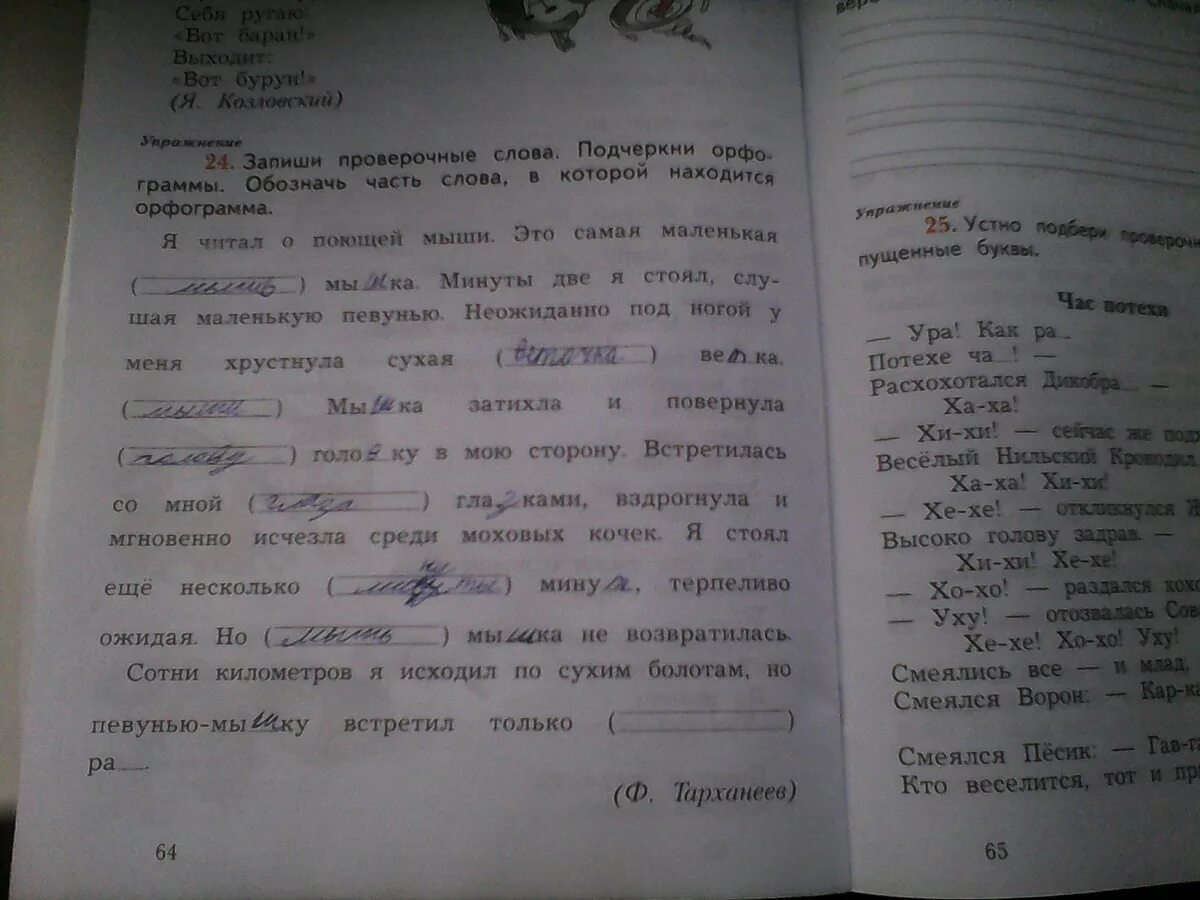 Себя ругаю:
«Вот баран!»
Выходит:
«Вот бурун!»
(Я. Козловский)
Упражнение
24. Запиши проверочные слова. Подчеркни орфо-
граммы. Обозначь часть слова, в которой находится
орфограмма.
Я читал о поющей мыши. Это самая маленькая
(мышь) мышка. Минуты две я стоял, слу-
шая маленькую певунью. Неожиданно под ногой у
меня хрустнула сухая (веточка) ветка.
(мыши) Мышка затихла и повернула
(голову) головку в мою сторону. Встретилась
со мной (глаза) глазками, вздрогнула и
мгновенно исчезла среди моховых кочек. Я стоял
ещё несколько (минуты) мину , терпеливо
ожидая. Но (мышь) мышка не возвратилась.
Сотни километров я исходил по сухим болотам, но
певунью-мышку встретил только ( )
ра__.
(Ф. Тарханеев)
64
Упражнение
25. Устно подбери
пущенные буквы.
Час потехи
— Ура! Как ра__
Потехе ча__! —
Расхохотался Дикобра__ —
Ха-ха!
— Хи-хи! — сейчас же
Весёлый Нильский Крокодил
Ха-ха! Хи-хи!
— Хе-хе! — откликнулся
Высоко голову задрав. —
Хи-хи! Хе-хе!
— Хо-хо! — раздался
— Уху! — отозвалась
Хе-хе! Хо-хо! Уху!
Смеялись все — и млад,
Смеялся Ворон: —
Смеялся Пёсик: —
Кто веселится, тот и
65